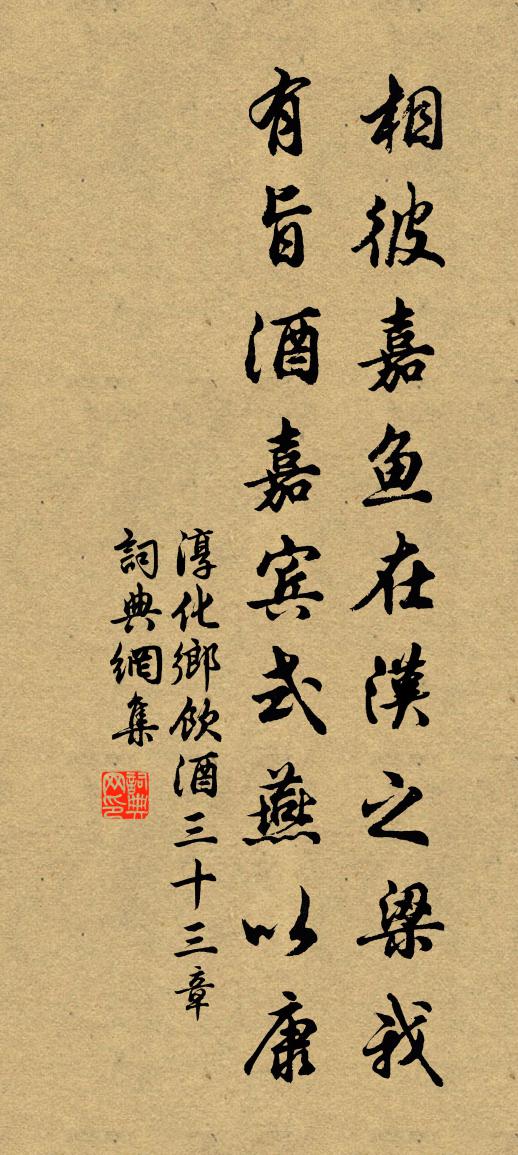 相彼嘉鱼在漢之梁我
有旨酒嘉宾式燕以康
淳化鄉飲酒三十三章
詞典網集
詞典网印